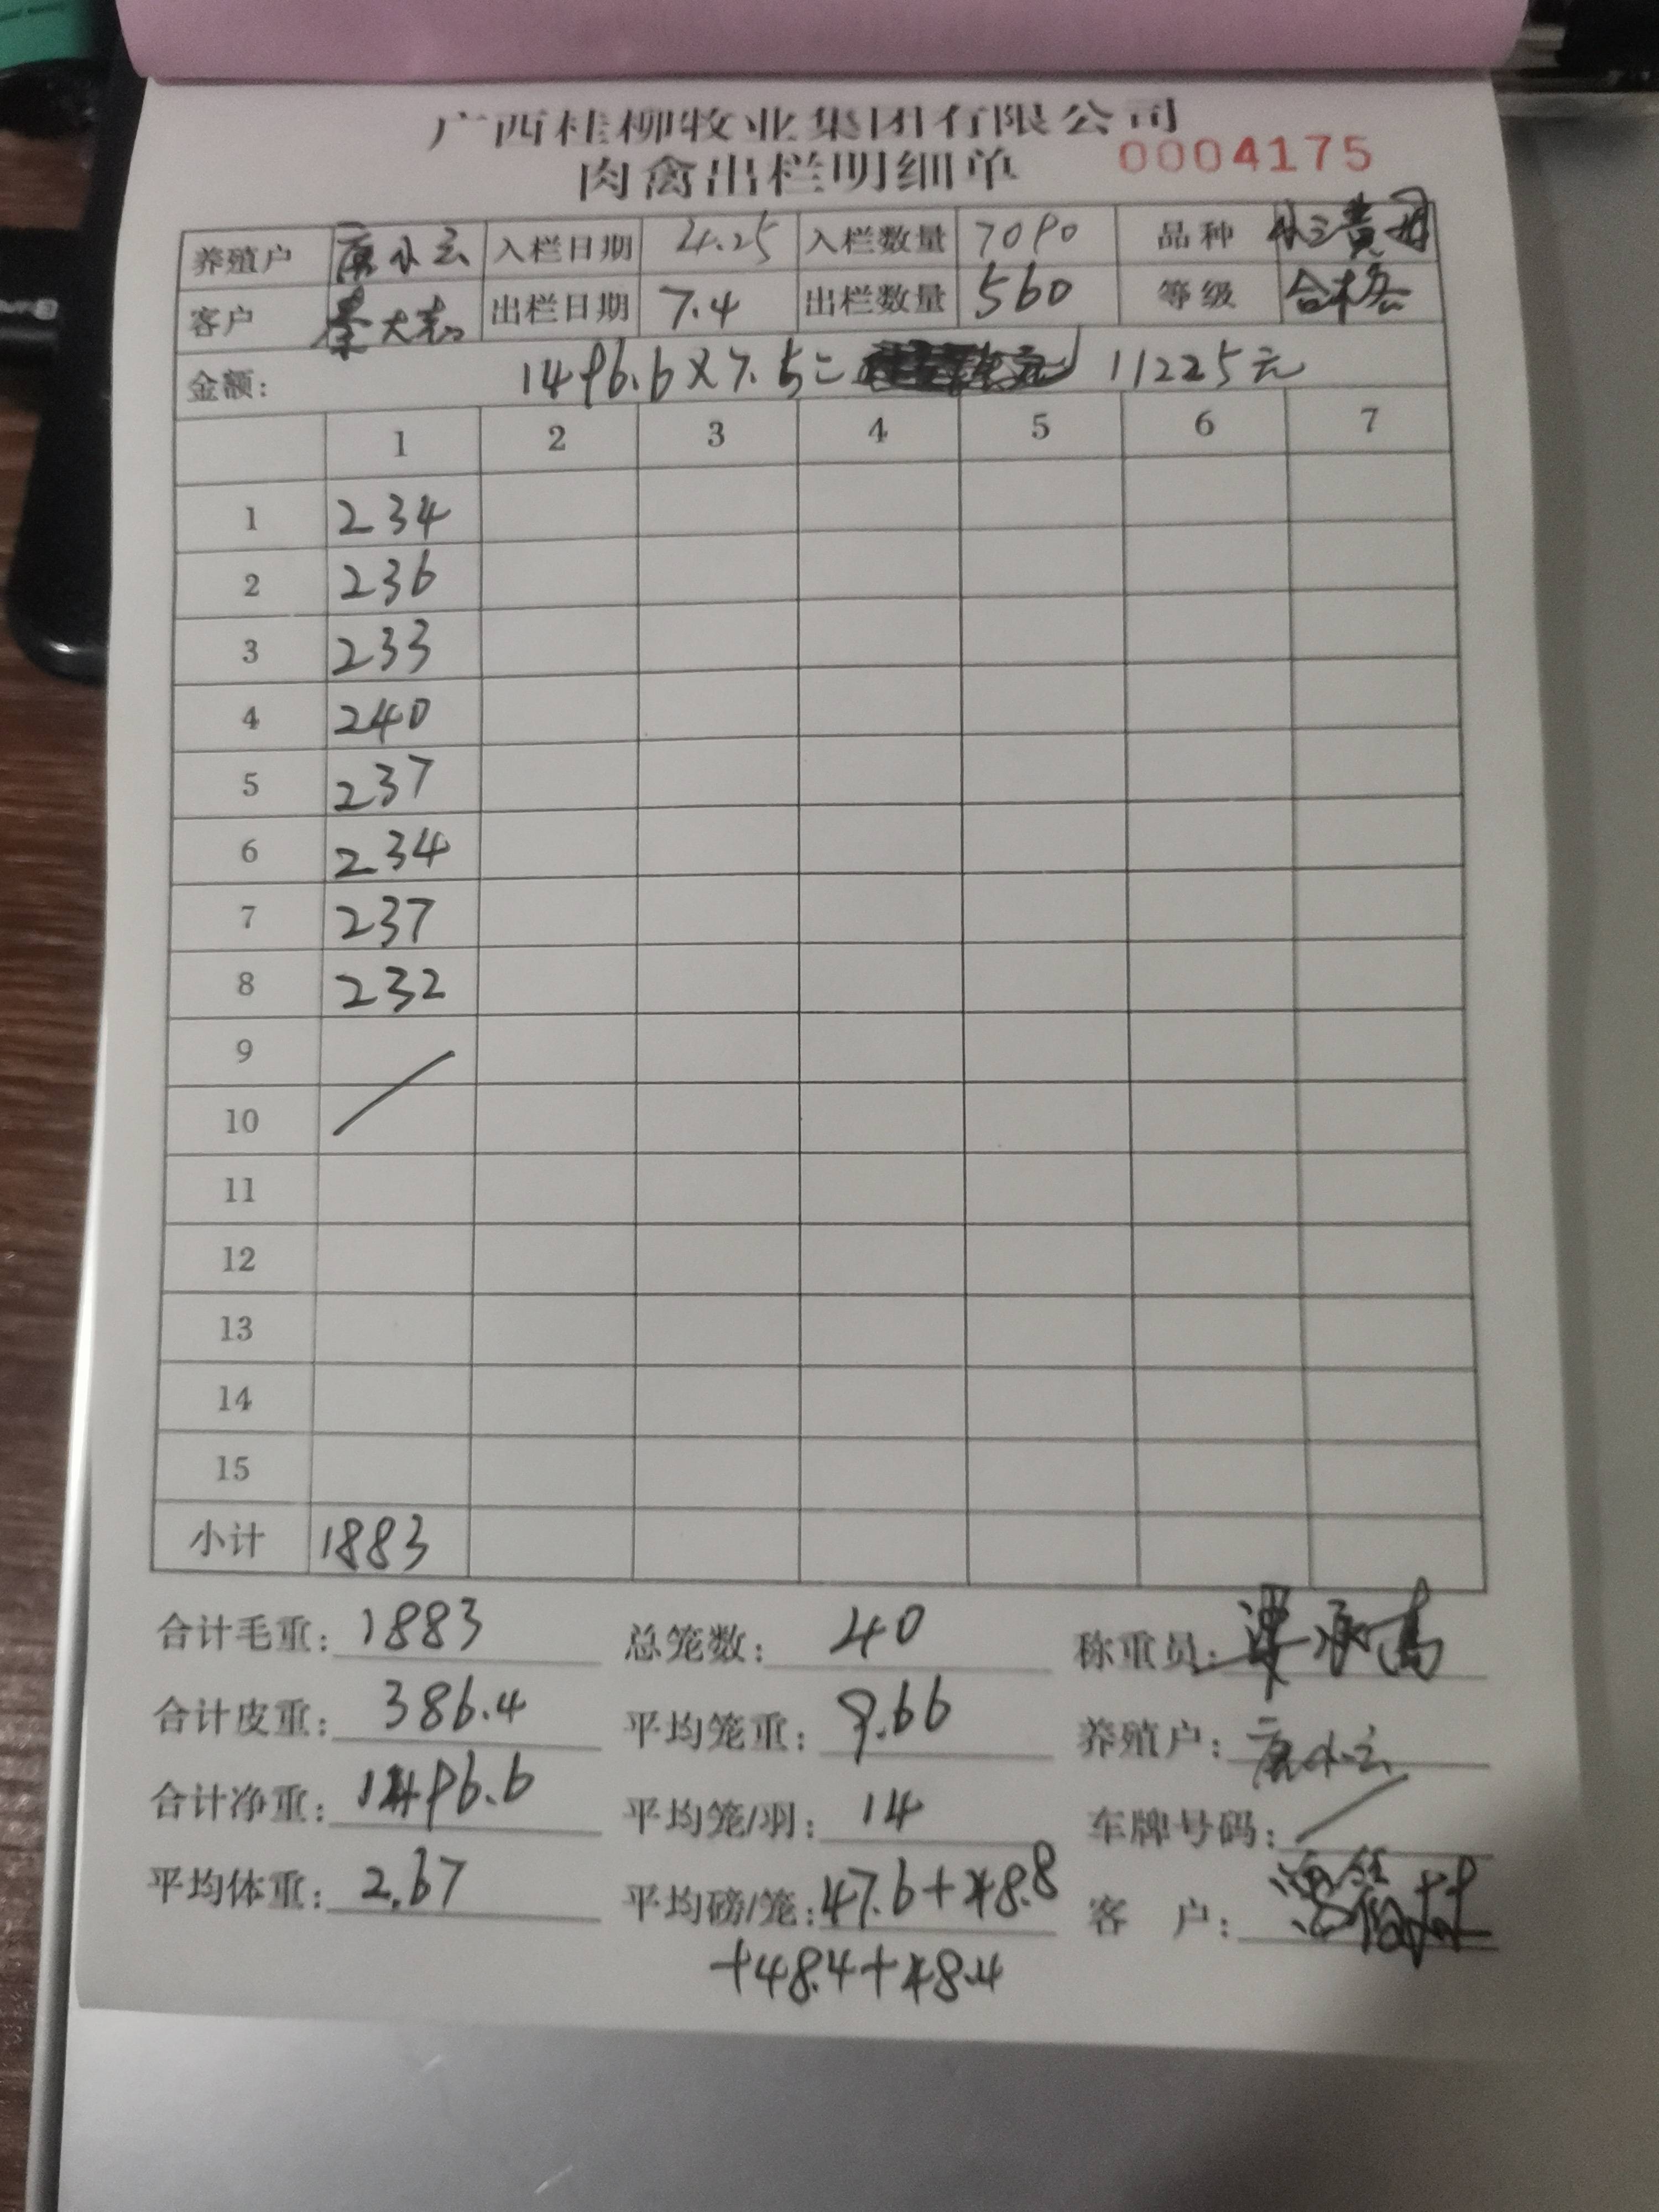 广西桂柳牧业集团有限公司
肉禽出栏明细单 0004175
养殖户 唐小云 入栏日期 4.25 入栏数量 7090 品种
客户 大志 出栏日期 7.4 出栏数量 560 等级 合格
金额: 1496.6×7.5= 11225元
1 2 3 4 5 6 7
1 234
2 236
3 233
4 240
5 237
6 234
7 237
8 232
9
10
11
12
13
14
15
小计 1883
合计毛重: 1883 总笼数: 40 称重员:
合计皮重: 386.4 平均笼重: 9.66 养殖户: 唐小云
合计净重: 1496.6 平均笼/羽: 14 车牌号码:
平均体重: 2.67 平均磅/笼: 47.6+48.8 客户:
+48.4+48.4